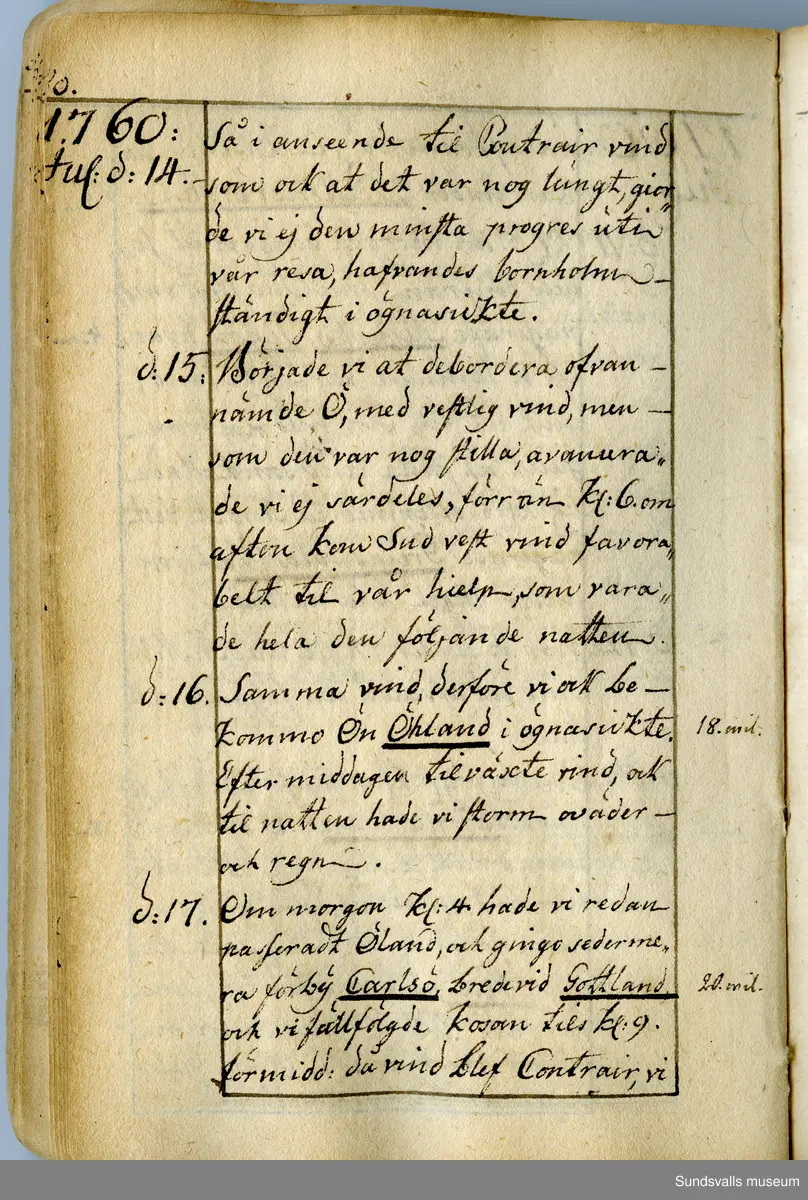 1760:
Jul: d: 14. Så i anseende til Contrair vind
som ock at det var nog lungt, gior„
de vi ej den minsta progres uti
vår resa, hafvandes bornholm
ständigt i ögnasickte.
d: 15: Började vi at debordera ofvan –
nämde Ö, med vestlig vind, men –
som den var nog stilla, avancera„
de vi ej särdeles, förr än kl: 6. om
afton kom Sud vest vind favora„
belt til vår hielp, som vara„
de hela den följande natten.
d: 16. Samma vind, derföre vi ock be –
kommo Ön Öhland i ögnasickte. 18. mil.
Efter middagen tilväxte vind, ock
til natten hade vi storm oväder –
och regn.
d: 17. Om morgon kl: 4 hade vi redan
passeradt Öland, och gingo sederme„
ra förbÿ Carlsö, bredevid Gottland, 20. mil.
och vi fullfölgde kosan tils kl: 9.
förmidd: då vind blef Contrair, vi
Sundsvalls museum